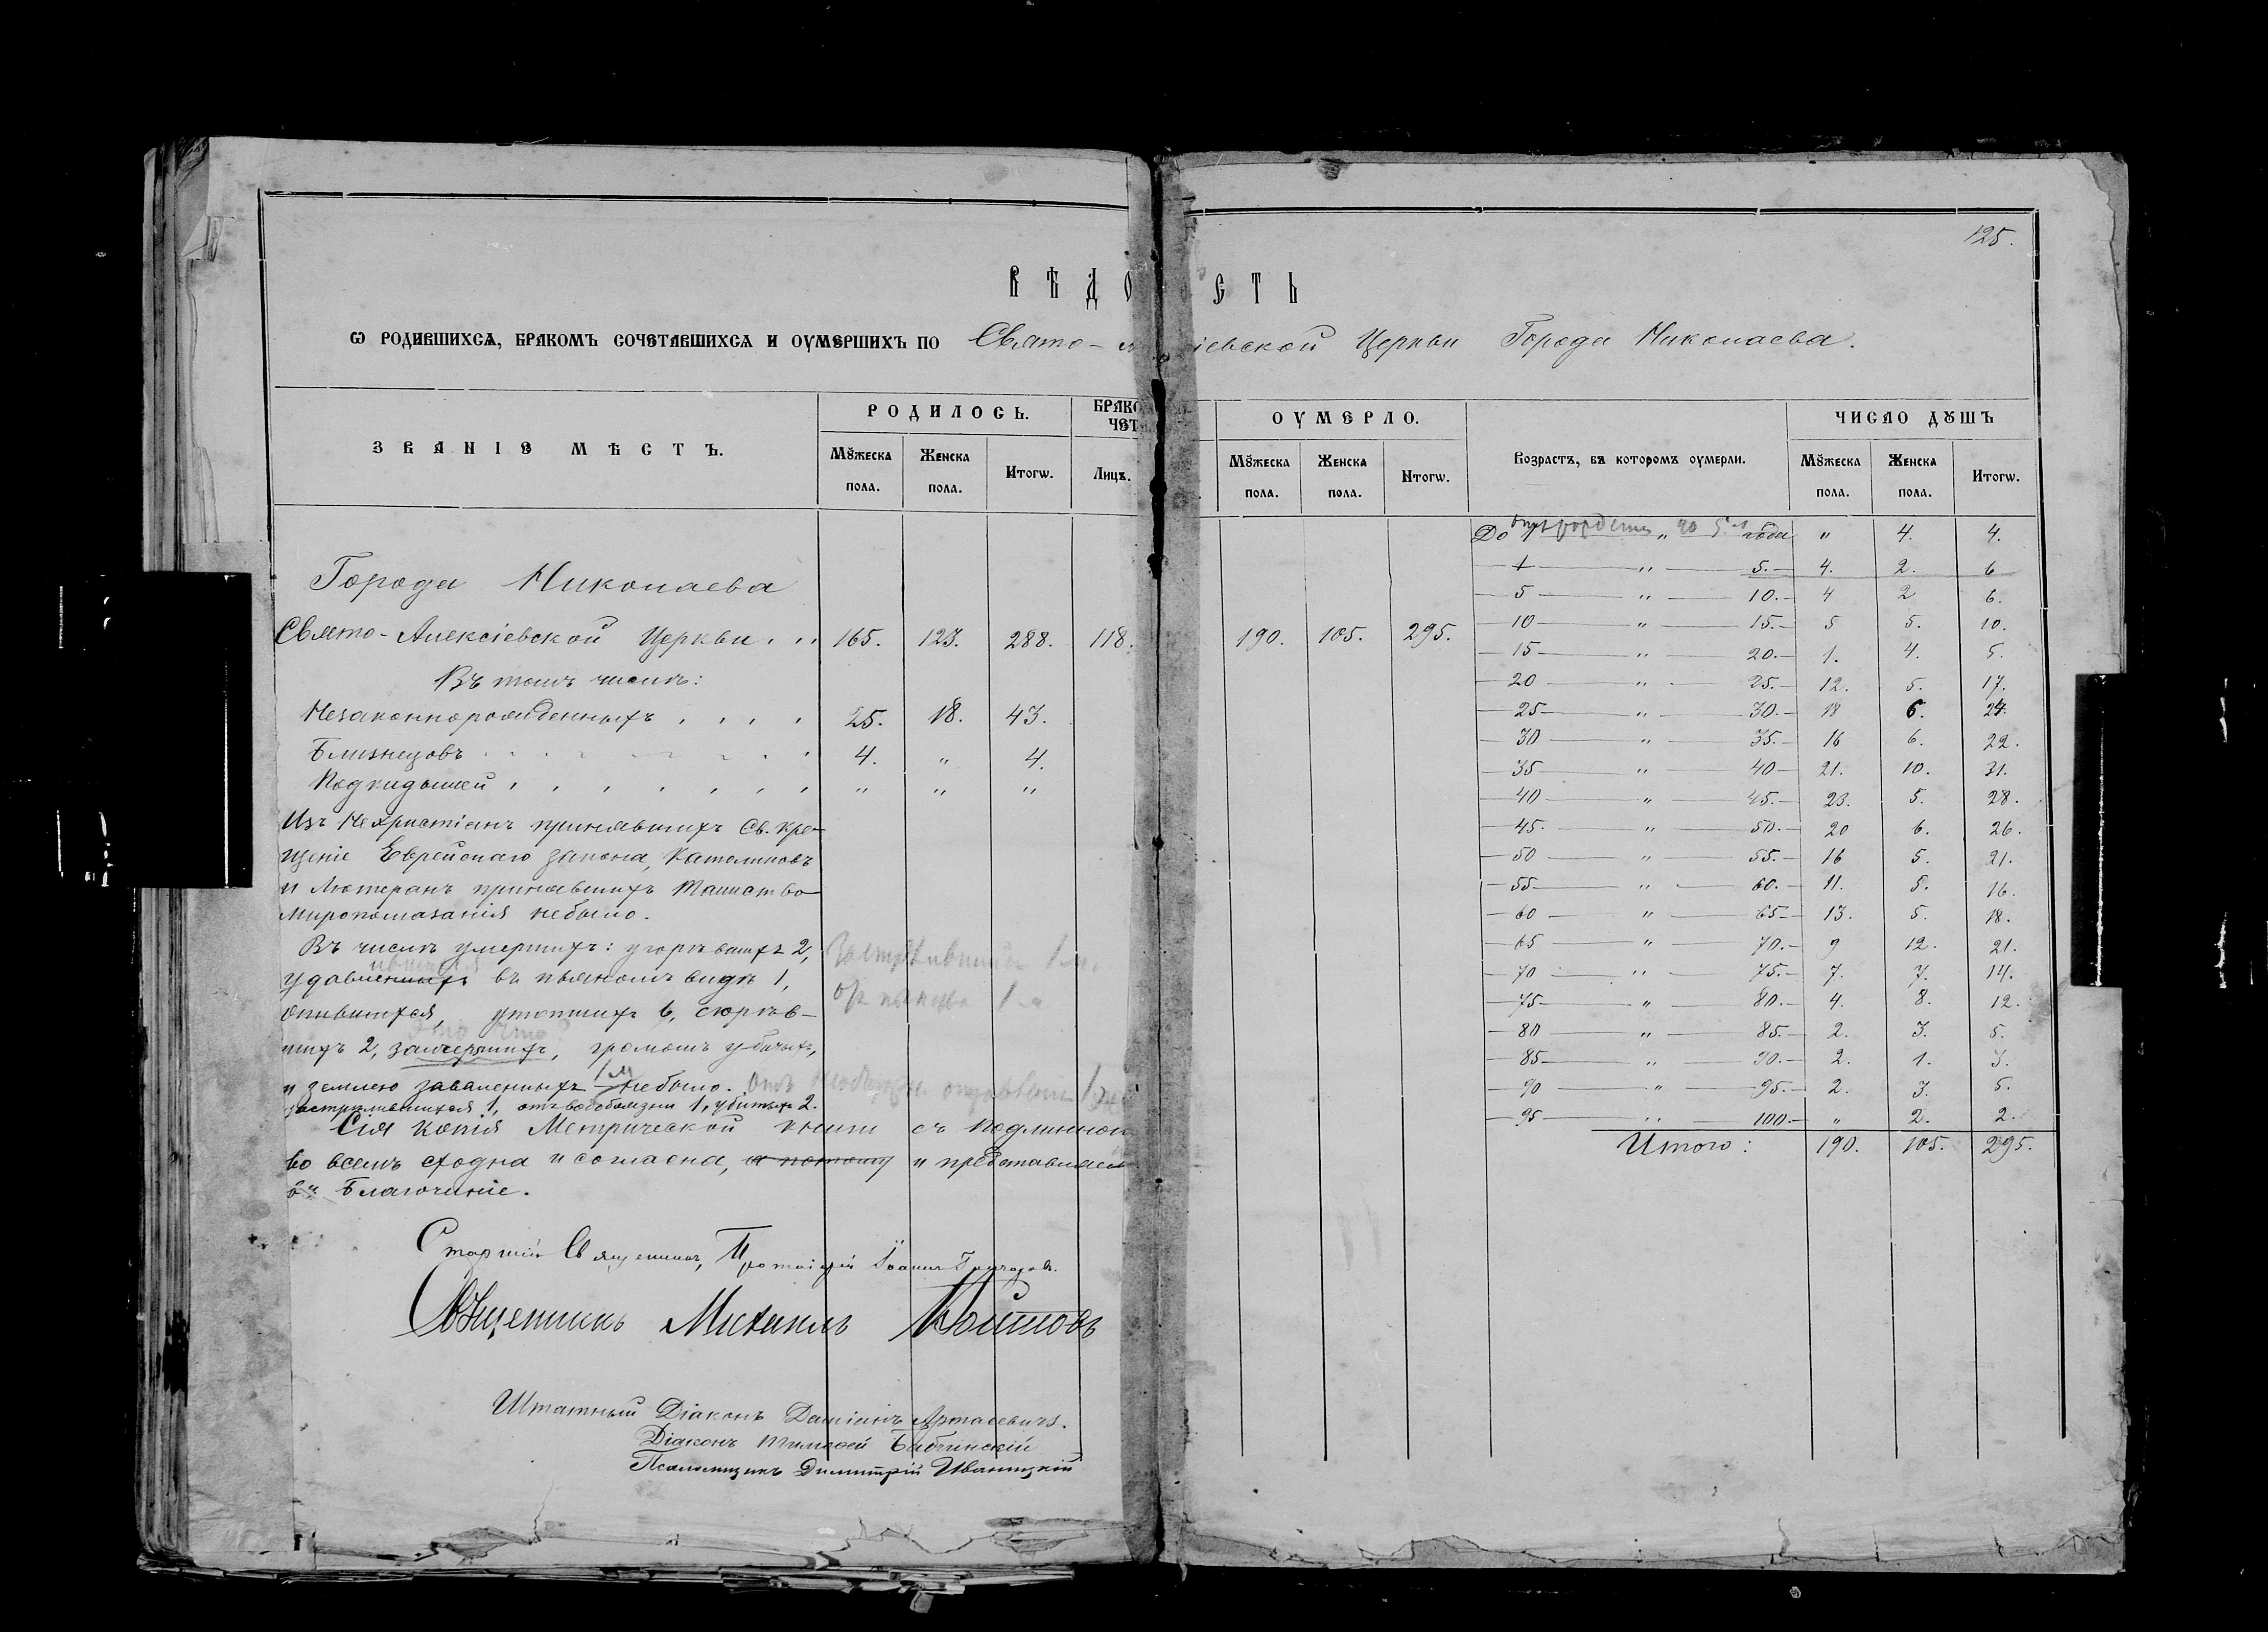 125.
ВѢДОСТЬ
Ѡ РОДИВШИХСѦ, БРАКОМЪ СОЧЕТАВШИХСѦ И ОУМЕРШИХЪ ПО Свято- іевской Церкви Города Николаева.
ЗВАНІЕ МѢСТЪ. РОДИЛОСЬ. БРАКО ЧЕТ ОУМЕРЛО. Возрастъ, въ которомъ оумерли. ЧИСЛО ДꙊШЪ
Мꙋжеска пола. Женска пола. Итогѡ. Лицъ. Мꙋжеска пола. Женска пола. Итогѡ. Мꙋжеска пола. Женска пола. Итогѡ.
Города Николаева
Свято-Алексіевской Церкви . . . 165. 123. 288. 118. 190. 105. 295.
Въ томъ числѣ:
Незаконнорожденныхъ . . . . 25. 18. 43.
Близнецовъ . . . . . . . 4. " 4.
Подкидышей . . . . . . . " " "
Изъ Нехристіанъ принявшихъ Св. Кре-
щеніе Еврейскаго закона, Католиковъ
и Лютеранъ принявшихъ Таинство
Миропомазанія небыло.
Въ числѣ умершихъ: угорѣвшихъ 2,
въ пьяномъ видѣ 1,
опившихся, утопшихъ 6, сгорѣв-
шихъ 2, замерзшихъ, громомъ убитыхъ,
и землею заваленныхъ небыло.
застрѣлившихся 1, отъ водобоязни 1, убитыхъ 2.
Сія копія Метрической книги съ подлинной
во всемъ сходна и согласна, а потому и представляемъ
въ Благочиніе.
Старшій Священникъ, Протоіерей Іоаннъ
Священникъ Михаилъ
Штатный Діаконъ Даміанъ
Діаконъ Тимоѳей
Псаломщикъ Димитрій Иваницкій
До " года " 4. 4.
1 " 5. 4. 2. 6
5 " 10. 4 2 6.
10 " 15. 5 5. 10.
15 " 20. 1. 4. 5.
20 " 25. 12. 5. 17.
25 " 30. 18 6. 24.
30 " 35. 16 6. 22.
35 " 40 21. 10. 31.
40 " 45. 23. 5. 28.
45. " 50. 20 6. 26.
50 " 55. 16 5. 21.
55 " 60. 11. 5. 16.
60 " 65 13. 5. 18.
65 " 70. 9 12. 21.
70 " 75. 7. 7. 14.
75 " 80. 4. 8. 12.
80 " 85. 2. 3. 5.
85 " 90. 2. 1. 3.
90 " 95. 2. 3. 5.
95 " 100. " 2. 2.
Итого: 190. 105. 295.